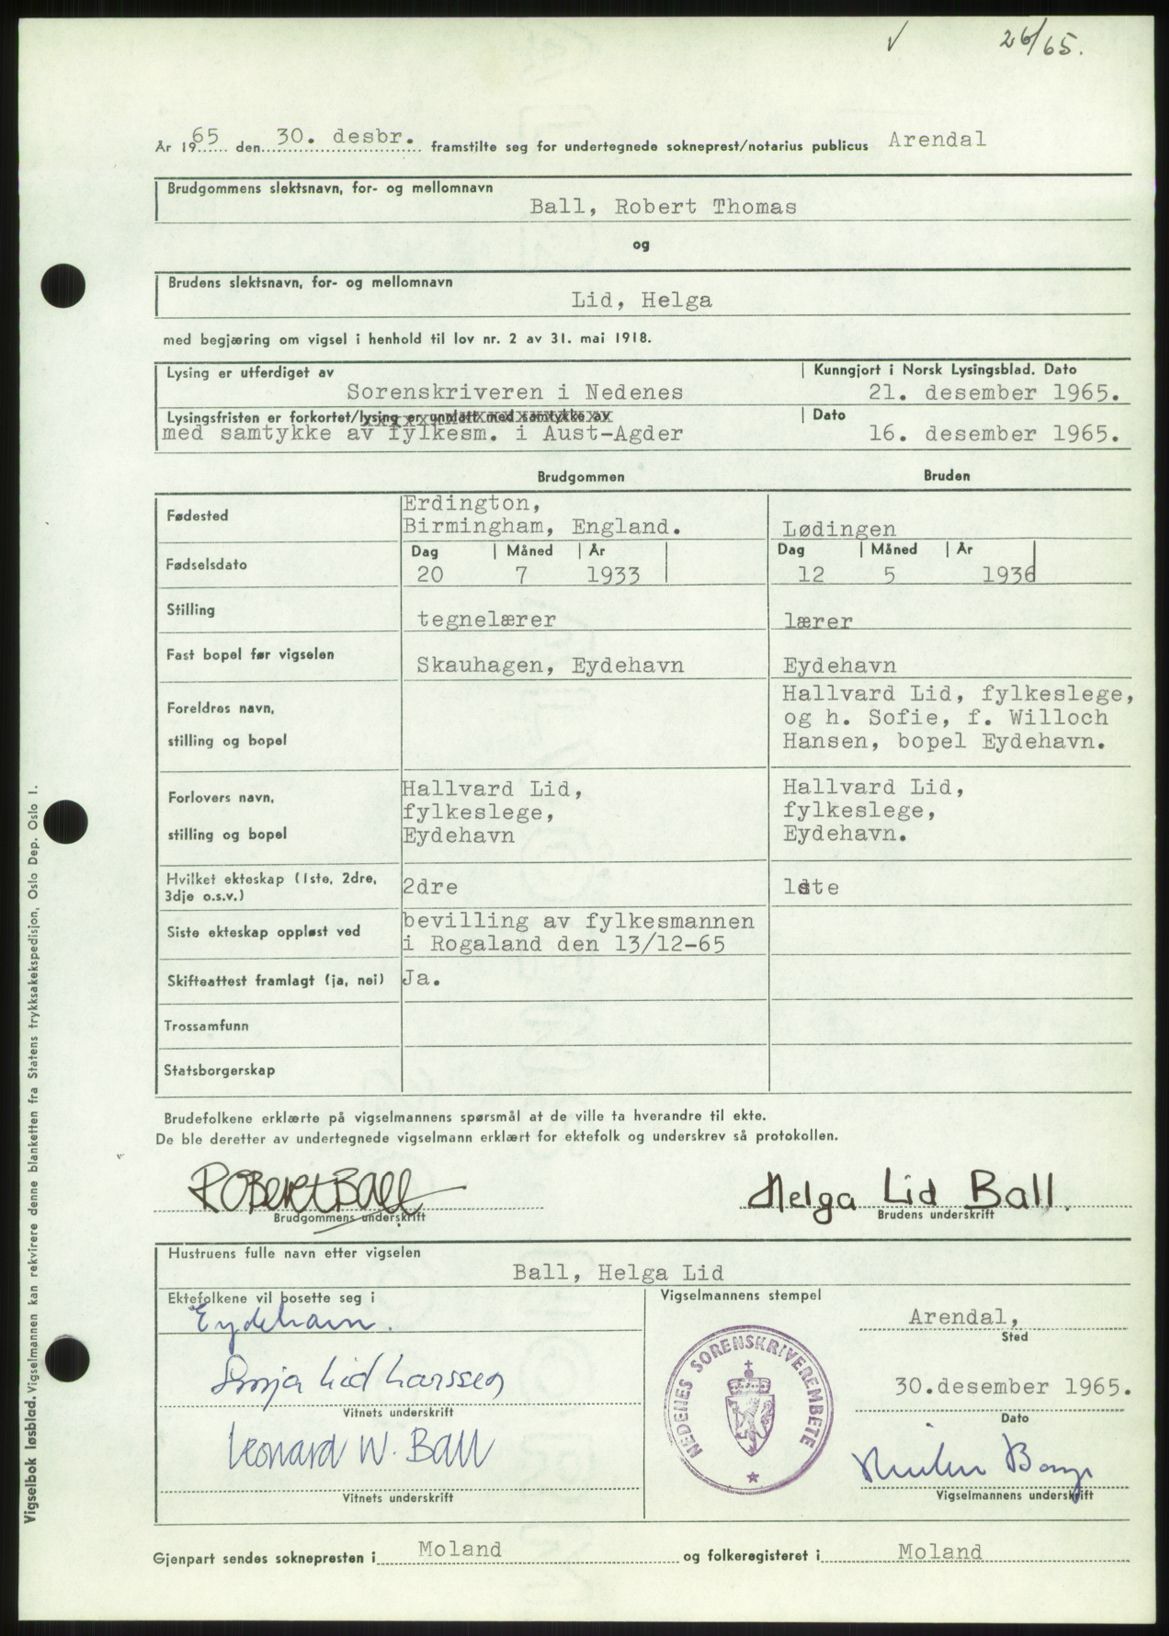 √ 26/65.
År 1965 den 30. desbr. framstilte seg for undertegnede sokneprest/notarius publicus Arendal
Brudgommens slektsnavn, for- og mellomnavn
Ball, Robert Thomas
og
Brudens slektsnavn, for- og mellomnavn
Lid, Helga
med begjæring om vigsel i henhold til lov nr. 2 av 31. mai 1918.
Lysing er utferdiget av | Kunngjort i Norsk Lysingsblad. Dato
Sorenskriveren i Nedenes 21. desember 1965.
Lysingsfristen er forkortet/lysing er unnlatt med samtykke av | Dato
med samtykke av fylkesm. i Aust-Agder 16. desember 1965.
Brudgommen Bruden
Fødested Erdington,
Birmingham, England. Lødingen
Fødselsdato Dag | Måned | År | Dag | Måned | År
20 7 1933 12 5 1936
Stilling tegnelærer lærer
Fast bopel før vigselen Skauhagen, Eydehavn Eydehavn
Foreldres navn,
stilling og bopel
Hallvard Lid, fylkeslege,
og h. Sofie, f. Willoch
Hansen, bopel Eydehavn.
Forlovers navn,
stilling og bopel
Hallvard Lid,
fylkeslege,
Eydehavn
Hallvard Lid,
fylkeslege,
Eydehavn.
Hvilket ekteskap (1ste, 2dre,
3dje o.s.v.) 2dre 1ste
Siste ekteskap oppløst ved bevilling av fylkesmannen
i Rogaland den 13/12-65
Skifteattest framlagt (ja, nei) Ja.
Trossamfunn
Statsborgerskap
Brudefolkene erklærte på vigselmannens spørsmål at de ville ta hverandre til ekte.
De ble deretter av undertegnede vigselmann erklært for ektefolk og underskrev så protokollen.
Robert Ball Helga Lid Ball.
Brudgommens underskrift Brudens underskrift
Hustruens fulle navn etter vigselen
Ball, Helga Lid
Ektefolkene vil bosette seg i Vigselmannens stempel
Eydehavn.
Arendal,
Sted
Sonja Lid Larssen
Vitnets underskrift
30.desember 1965.
Dato
Leonard W. Ball
Vitnets underskrift
Vigselmannens underskrift
NEDENES SORENSKRIVEREMBETE
Gjenpart sendes soknepresten i Moland og folkeregisteret i Moland
Vigselbok løsblad. Vigselmannen kan rekvirere denne blanketten fra Statens trykksakekspedisjon, Oslo Dep. Oslo 1.